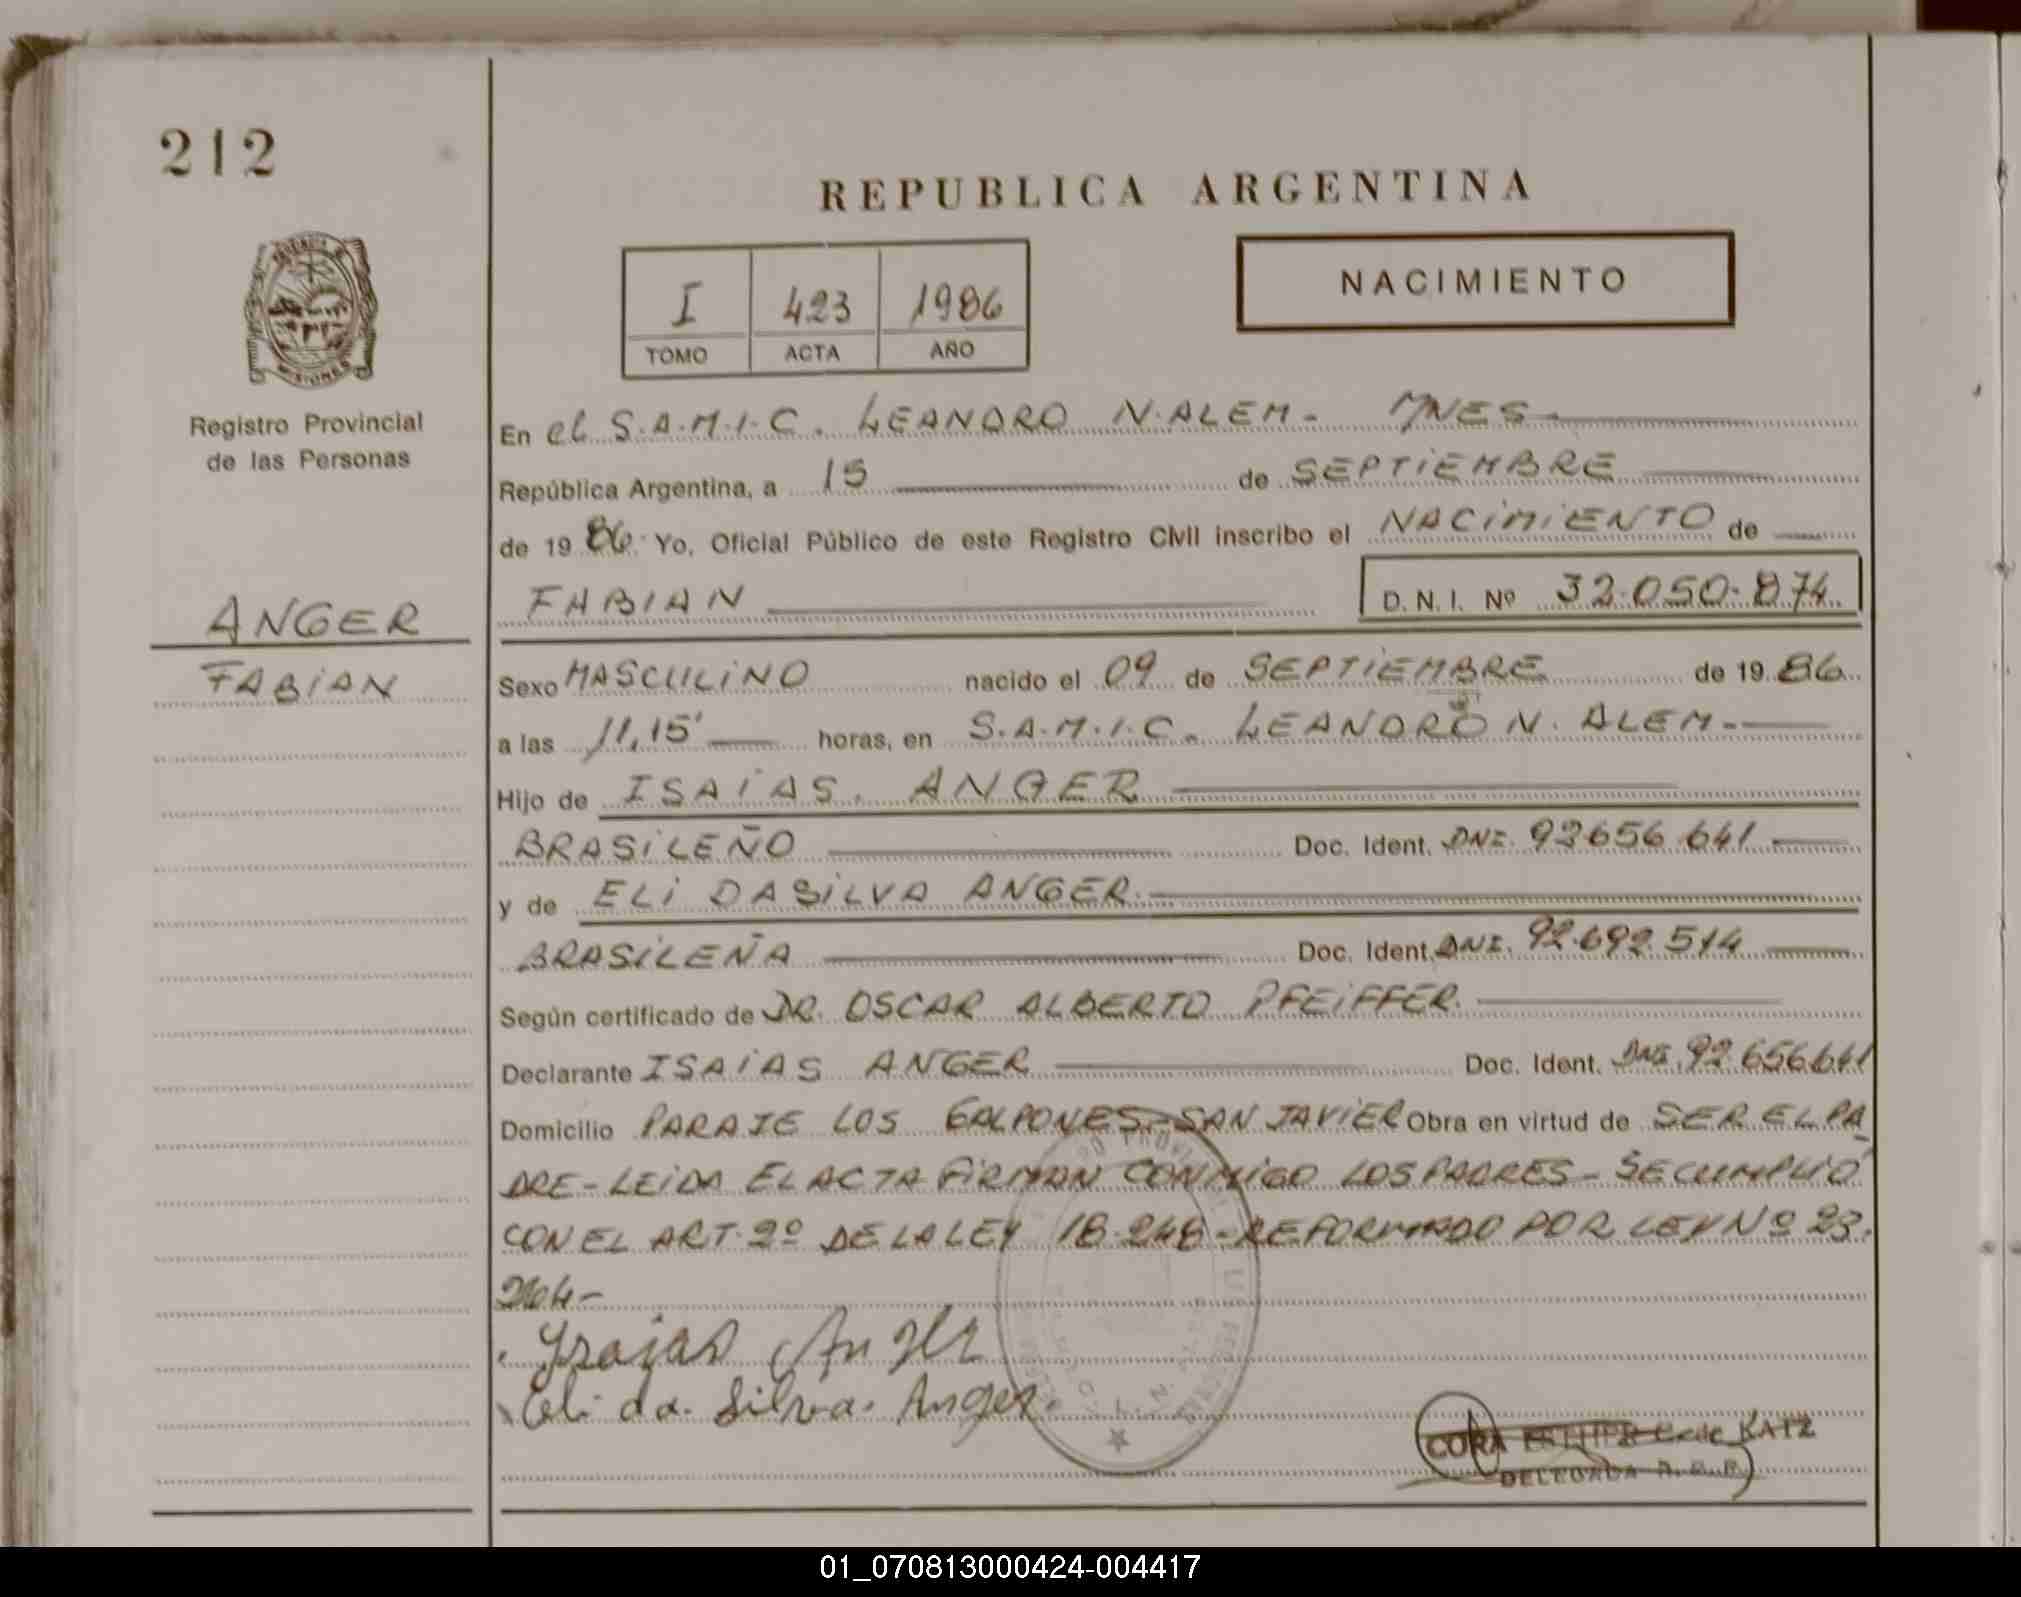 212
REPUBLICA ARGENTINA
I 423 1986
TOMO ACTA AÑO
NACIMIENTO
MISIONES
Registro Provincial
de las Personas
ANGER
FABIAN
En el S.A.M.I.C. LEANDRO N. ALEM - MNES
República Argentina, a 15 de SEPTIEMBRE
de 19 86. Yo, Oficial Público de este Registro Civil inscribo el NACIMIENTO de
FABIAN D. N. I. Nº 32.050.874
Sexo MASCULINO nacido el 09 de SEPTIEMBRE de 19 86
a las 11,15' horas, en S.A.M.I.C. LEANDRO N. ALEM -
Hijo de ISAIAS. ANGER
BRASILEÑO Doc. Ident. DNI. 92656.641
y de ELI DASILVA ANGER.
BRASILEÑA Doc. Ident. DNI. 92.692.514
Según certificado de DR. OSCAR ALBERTO PFEIFFER.
Declarante ISAIAS ANGER Doc. Ident. DNI. 92.656641
Domicilio PARAJE LOS GALPONES - SAN JAVIER Obra en virtud de SER EL PA
DRE - LEIDA EL ACTA FIRMAN CONMIGO LOS PADRES - SE CUMPLIO
CON EL ART. 2º DE LA LEY 18.248 - REFORMADO POR LEY Nº 23.
264 -
Isaias Anger
Eli da. Silva. Anger.
CORA ESTHER C. de KATZ
DELEGADA R.C.P.
01_070813000424-004417